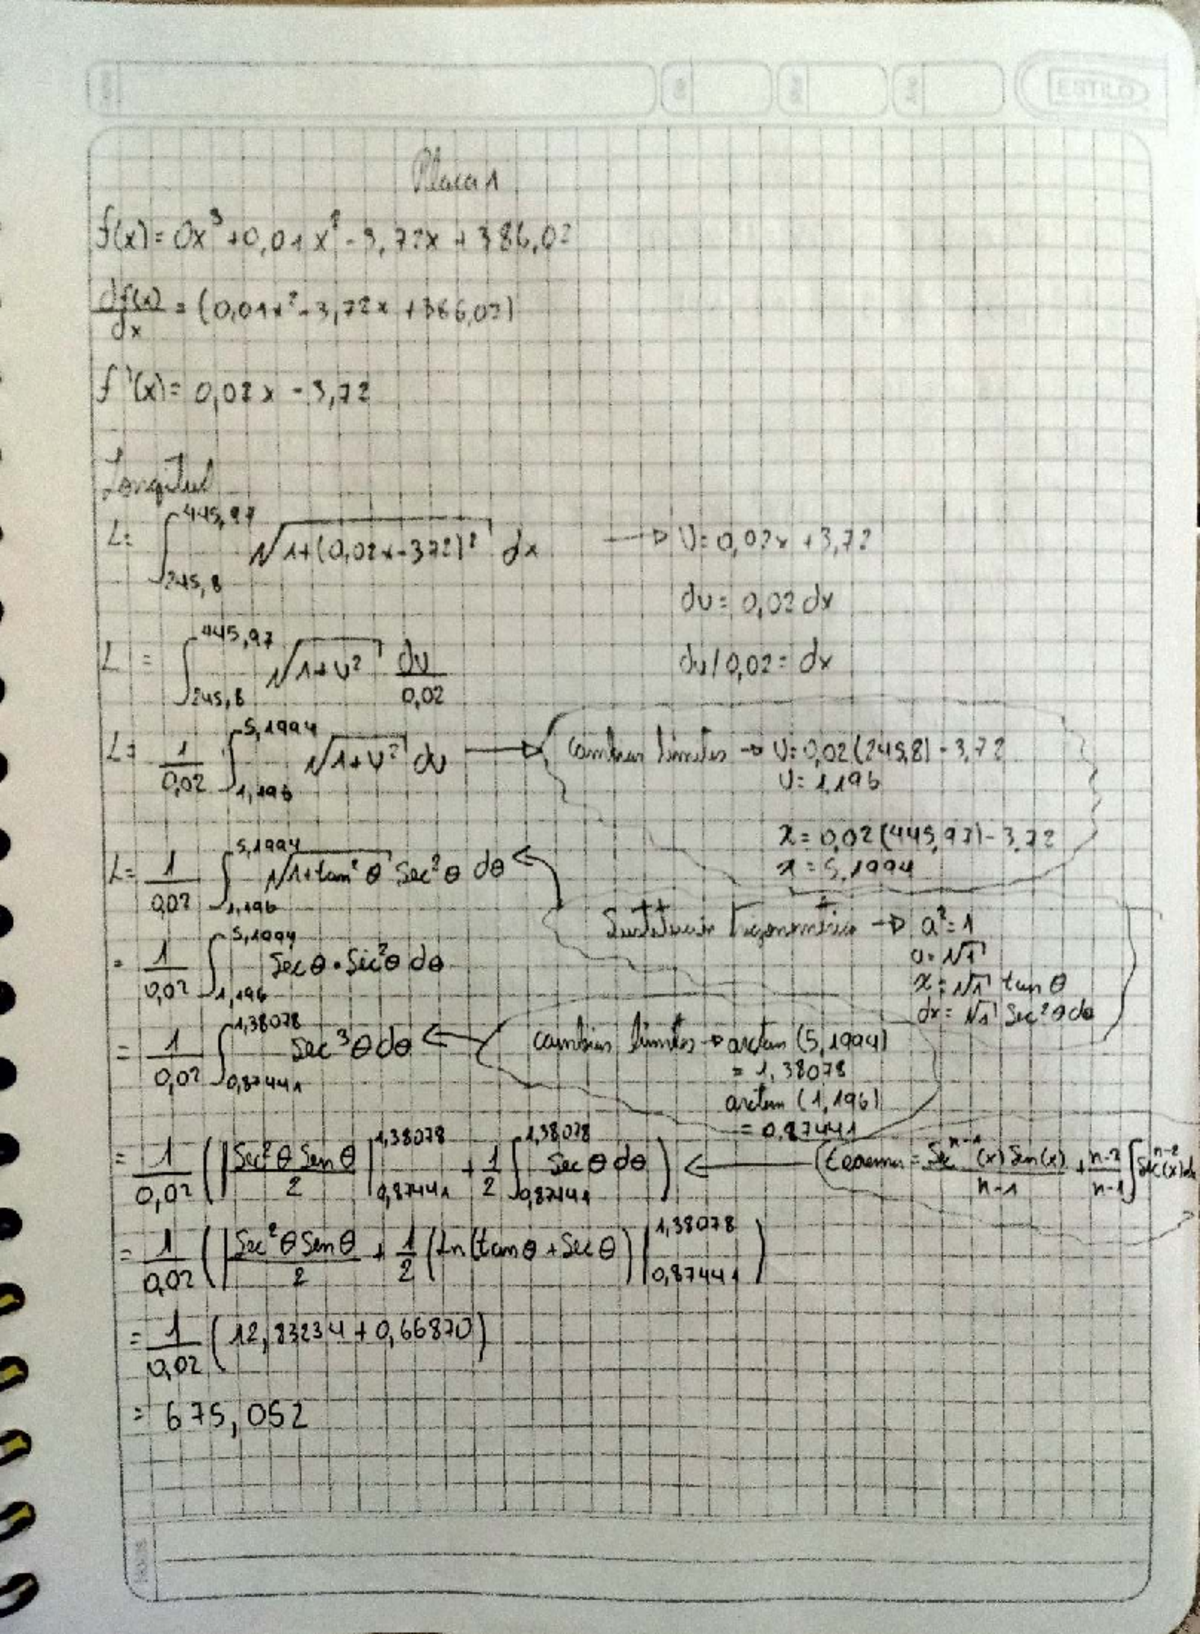 ESTILO
Placa 1
f(x)= 0x³+0,01x²-3,72x+386,02
df(x)/dx = (0,01x²-3,72x+386,02)
f'(x)= 0,02x-3,72
Longitud
L= ∫_{245,8}^{445,97} √(1+(0,02x-3,72)²) dx → U=0,02x+3,72
du=0,02dx
L = ∫_{245,8}^{445,97} √(1+u²) du/0,02 du/0,02=dx
L= 1/0,02 ∫_{1,196}^{5,1994} √(1+u²) du → cambian límites → U=0,02(245,8)-3,72
U=1,196
x=0,02(445,97)-3,72
x=5,1994
L= 1/0,02 ∫_{1,196}^{5,1994} √(1+tan²θ) Sec²θ dθ
Sustitución trigonométrica → a²=1
a=√1
= 1/0,02 ∫_{1,196}^{5,1994} Secθ·Sec²θ dθ
x=√1 tanθ
dx=√1 Sec²θdθ
= 1/0,02 ∫_{0,87441}^{1,38078} Sec³θdθ ← cambian límites → arctan(5,1994)
=1,38078
arctan(1,196)
=0,87441
= 1/0,02 (|Sec²θ Senθ/2|_{0,87441}^{1,38078} + 1/2 ∫_{0,87441}^{1,38078} Secθdθ) ← (teorema= Sec^{n-1}(x)Sen(x)/n-1 + n-2/n-1 ∫Sec^{n-2}(x)dx
= 1/0,02 (|Sec²θSenθ/2 + 1/2 (Ln(tanθ+Secθ)|_{0,87441}^{1,38078})
= 1/0,02 (12,83234+0,66870)
= 675,052